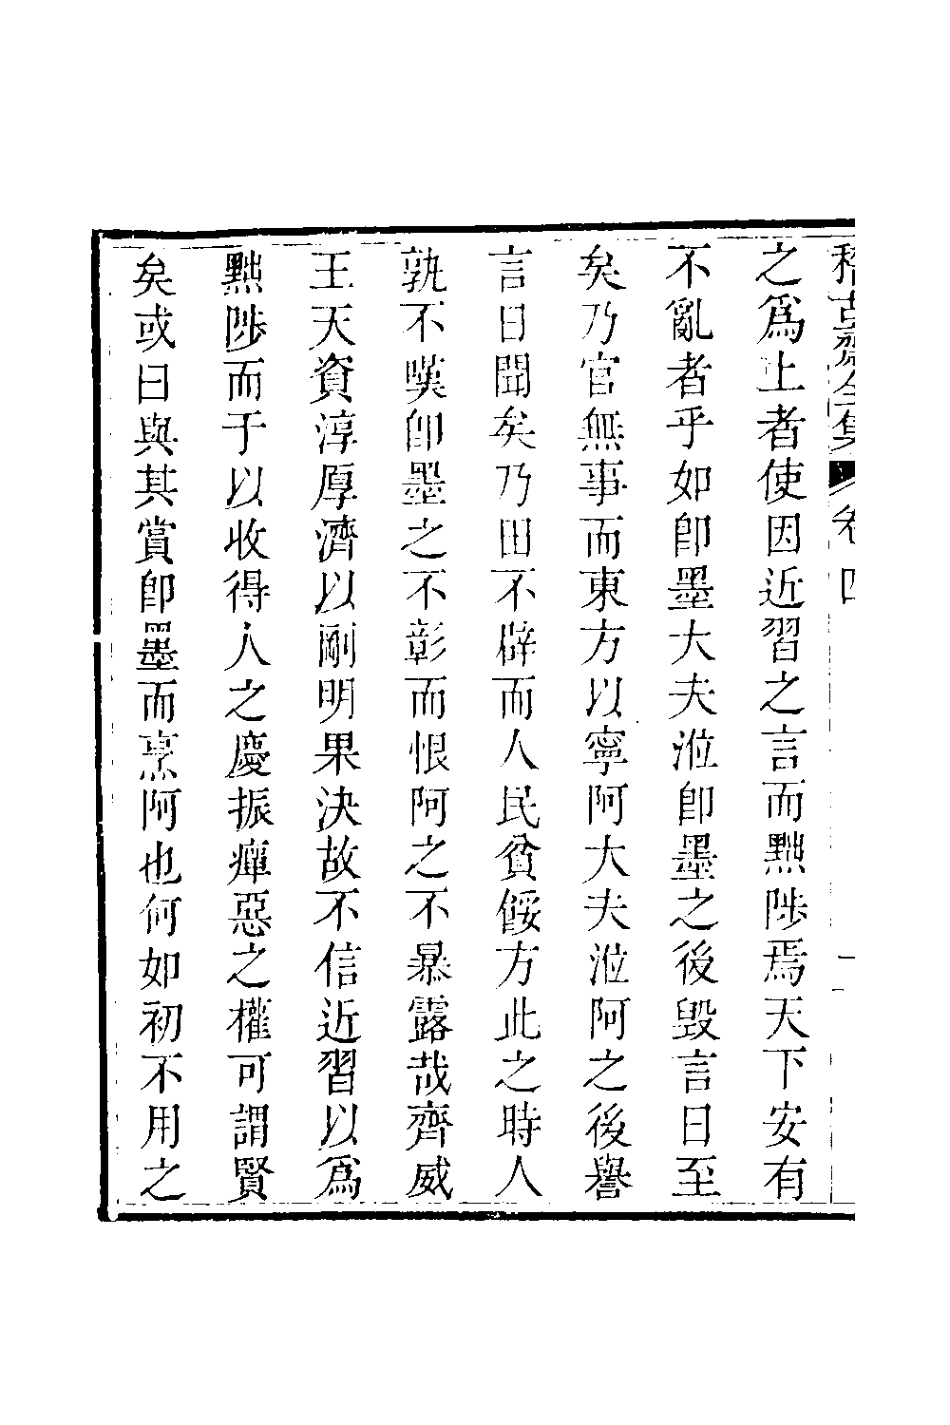 稽古齋全集 卷四
之為上者使因近習之言而黜陟焉天下安有
不亂者乎如卽墨大夫涖卽墨之後毀言日至
矣乃官無事而東方以寧阿大夫涖阿之後譽
言日聞矣乃田不辟而人民貧餒方此之時人
孰不嘆卽墨之不彰而恨阿之不暴露哉齊威
王天資淳厚濟以剛明果決故不信近習以為
黜陟而于以收得人之慶振癉惡之權可謂賢
矣或曰與其賞卽墨而烹阿也何如初不用之